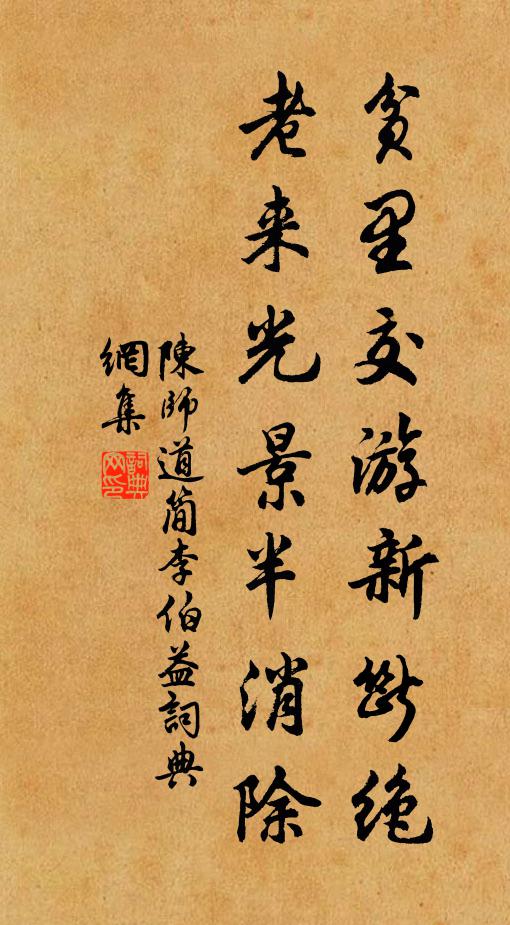 貧里交游新断绝
老来光景半消除
陳師道简李伯益詞典
網集
詞典网印